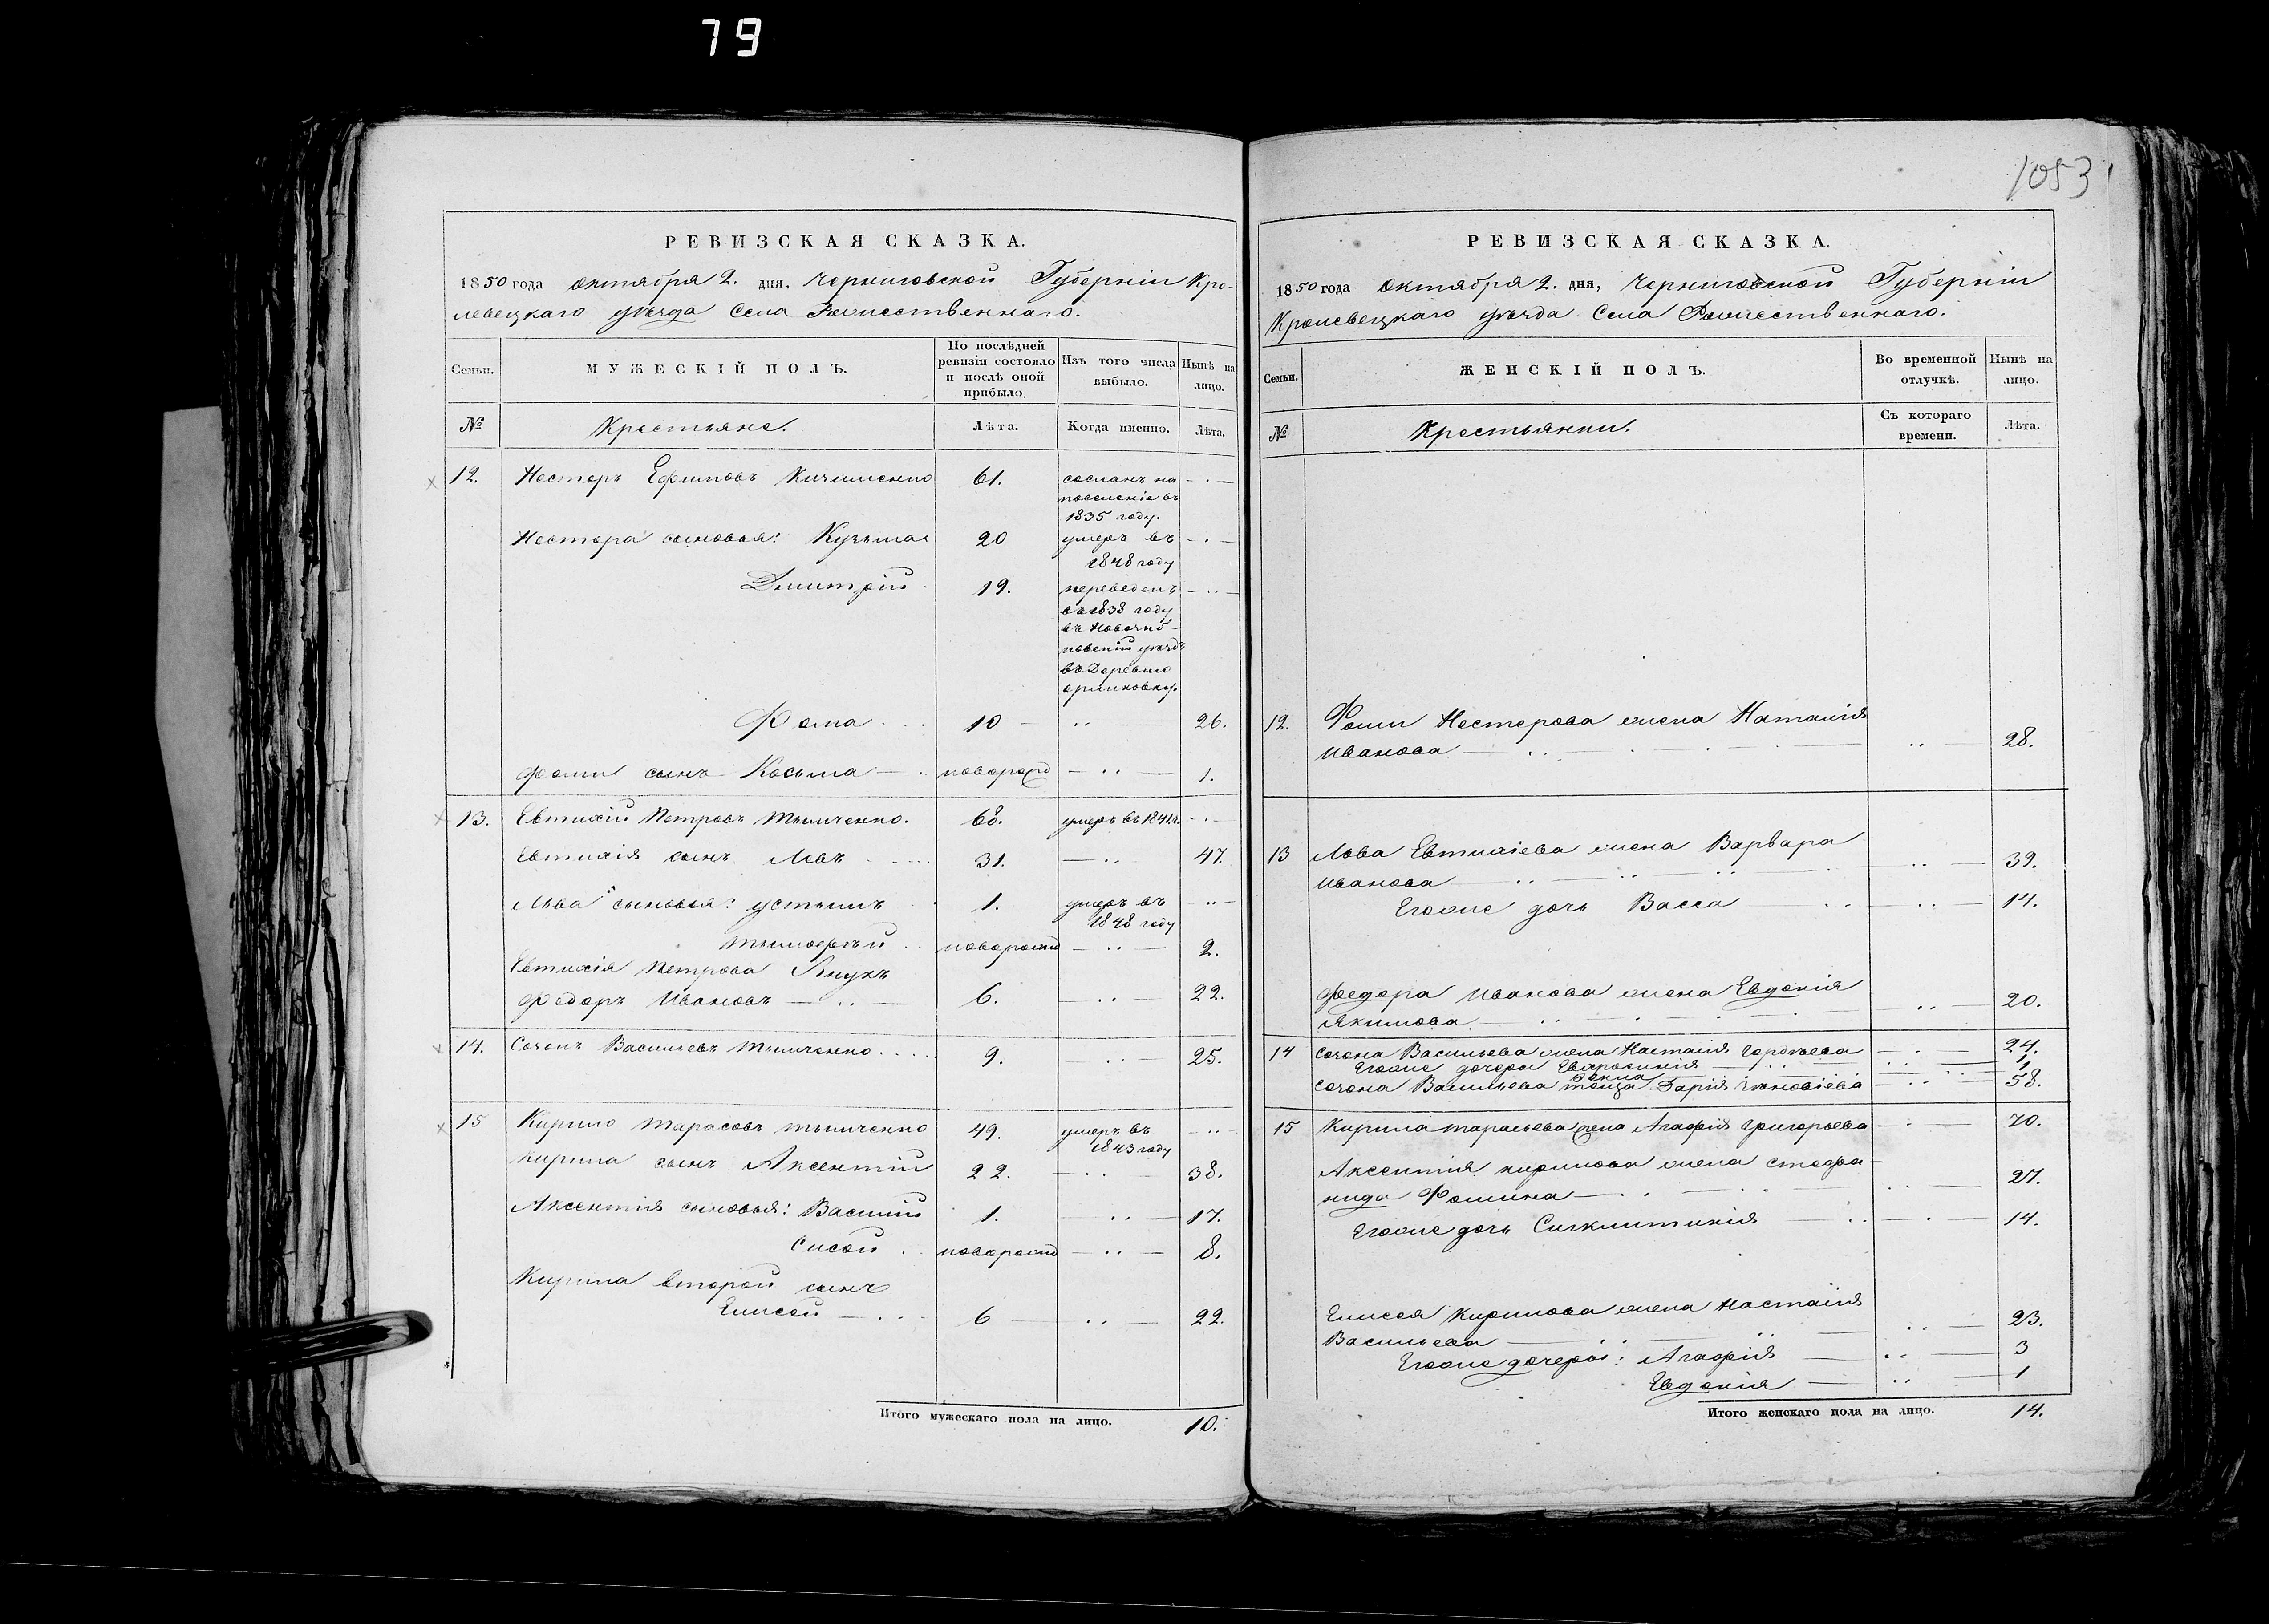 79
1053
РЕВИЗСКАЯ СКАЗКА.
1850 года октября 2. дня. Черниговской Губерніи Кро-
левецкаго уѣзда Села Рожественнаго.
Семьи.
МУЖЕСКІЙ ПОЛЪ.
По послѣдней ревизіи состояло и послѣ оной прибыло.
Изъ того числа выбыло.
Нынѣ на лицо.
№
Крестьяне.
Лѣта.
Когда именно.
Лѣта.
12. Несторъ Ефимовъ 61. сосланъ на
поселеніе въ
1835 году.
Нестора сыновья: Кузьма 20 умеръ въ
1848 году
Дмитрій 19. переведенъ
въ 1838 году
въ
уѣздъ
въ Деревню
Фома 10 26.
Фомы сынъ Косьма новорожд 1.
13. Евтихій Петровъ Тымченко. 68. умеръ въ
Евтихія сынъ Левъ 31. 47.
Льва сыновья: Устимъ 1. умеръ въ
1848 году
Тимофѣй новорожд 2.
Евтихія Петрова Внукъ
Федоръ Ивановъ 6. 22.
14. Созонъ Васильевъ Тымченко 9. 25.
15 Кирило Тарасовъ Тымченко 49. умеръ въ
1843 году
Кирила сынъ Аксентій 22. 38.
Аксентія сыновья: Василій 1. 17.
Сисой новорожд 8.
Кирила второй сынъ
Елисей 6 22.
Итого мужескаго пола на лицо. 10.
РЕВИЗСКАЯ СКАЗКА.
1850 года октября 2. дня, Черниговской Губерніи
Кролевецкаго уѣзда Села Рожественнаго.
Семьи.
ЖЕНСКІЙ ПОЛЪ.
Во временной отлучкѣ.
Нынѣ на лицо.
№
Крестьянки.
Съ котораго времени.
Лѣта.
12. Фомы Нестерова жена Наталія
Иванова 28.
13 Льва Евтихіева жена Варвара
Иванова 39.
Егоже дочь Васса 14.
Федора Иванова жена Евдокія
Якимова 20.
14 Созона Васильева жена Настасія Гордѣева 24.
Егоже дочери Евфросинія 1
1
Созона Васильева 58.
15 Кирила Тарасьева жена Агафія Григорьева 70.
Аксентія Кирилова жена Стефа-
нида Фомина 27.
Егоже дочь Синклитикія 14.
Елисея Кирилова жена Настасія
Васильева 23.
Егоже дочери: Агафія 3
Евдокія 1
Итого женскаго пола на лицо. 14.